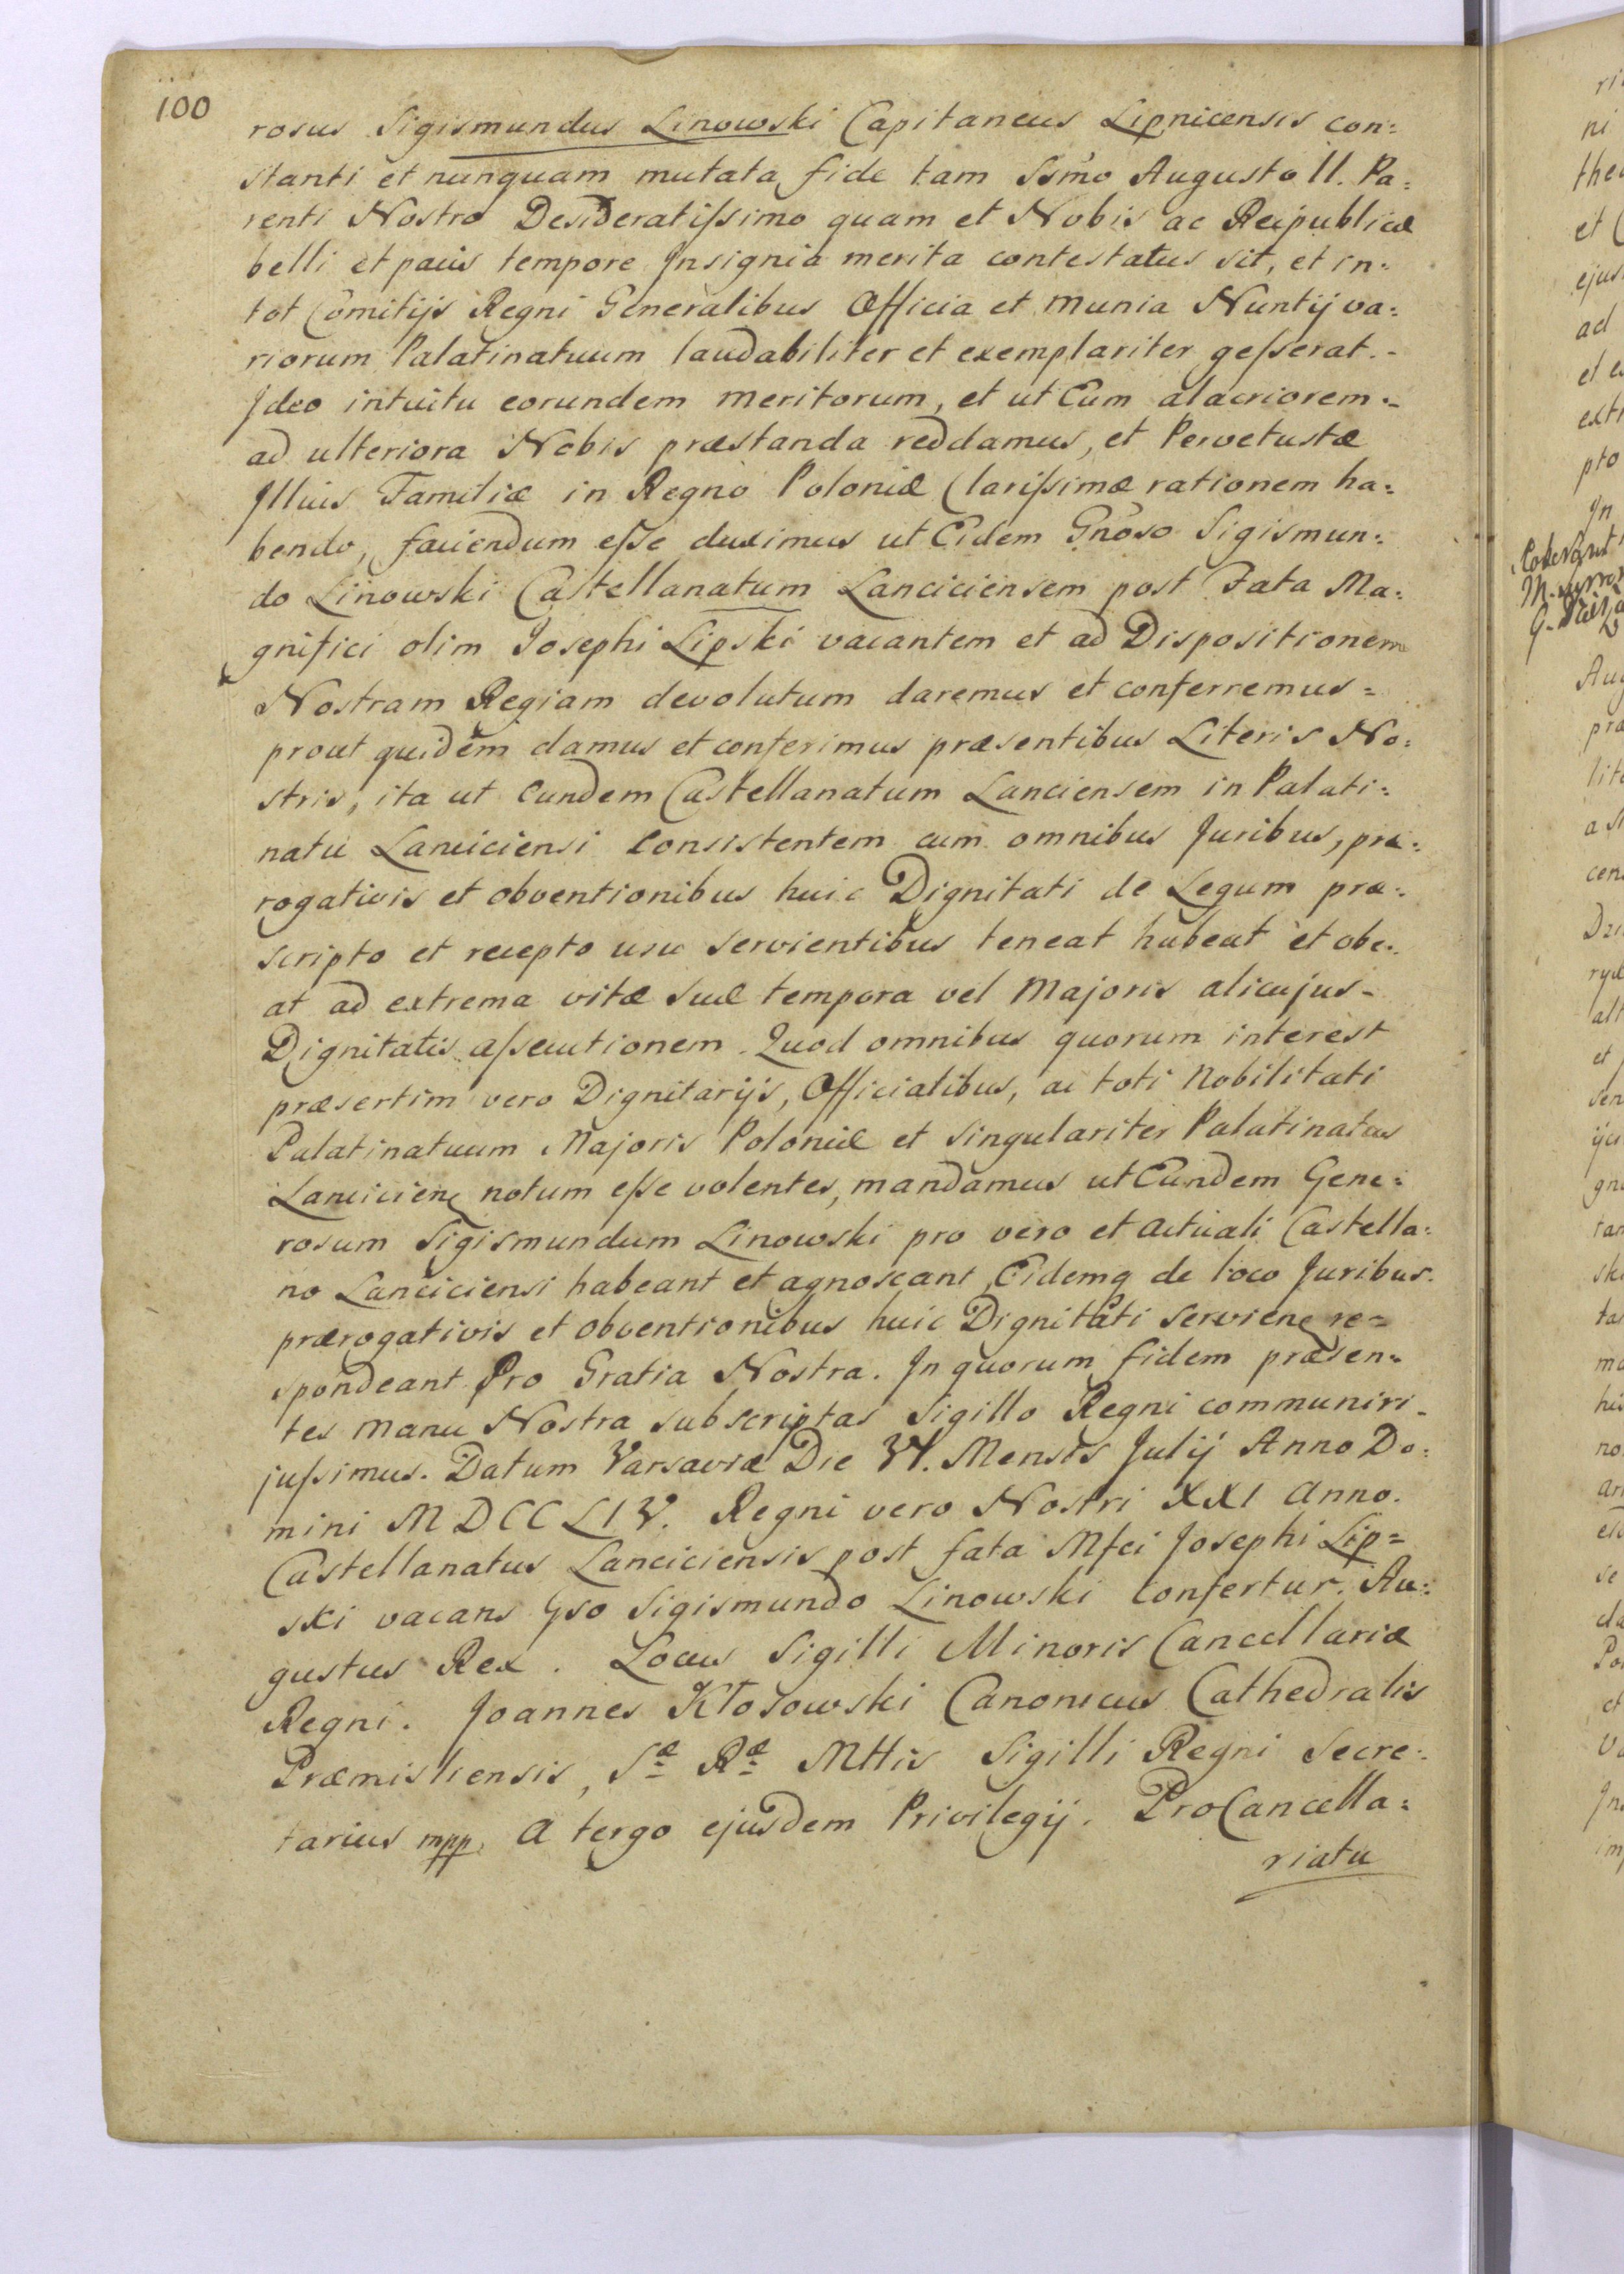 100
rosus Sigismundus Linowski Capitaneus Lipnicensis con=
stanti et nunquam mutata fide tam Ssmo Augusto II. Pa=
renti Nostro Desideratissimo quam et Nobis ac Reipublicæ
belli et pacis tempore Insignia merita contestatus sit, et in=
tot Comitijs Regni Generalibus Officia et munia Nuntij va=
riorum Palatinatuum laudabiliter et exemplariter gesserat.-
Ideo intuitu eorundem meritorum, et ut Eum alacriorem=
ad ulteriora Nobis præstanda reddamus, et Pervetustæ
Illius Familiæ in Regno Poloniæ Clarissimæ rationem ha=
bendo, faciendum esse duximus ut Eidem Gnoso Sigismun=
do Linowski Castellanatum Lanciciensem post Fata Ma=
gnifici olim Josephi Lipski vacantem et ad Dispositionem
Nostram Regiam devolutum daremus et conferremus=
prout quidem damus et conferimus præsentibus Literis No=
stris, ita ut Eundem Castellanatum Lanciensem in Palati=
natu Lanciciensi Consistentem cum omnibus Juribus, præ=
rogativis et obventionibus huic Dignitati de Legum præ=
scripto et recepto usu servientibus teneat habeat et obe=
at ad extrema vitæ suæ tempora vel Majoris alicujus-
Dignitatis assecutionem. Quod omnibus quorum interest
præsertim vero Dignitarijs, Officialibus, ac toti Nobilitati
Palatinatuum Majoris Poloniæ et singulariter Palatinatus
Lancicien notum esse volentes, mandamus ut Eundem Gene=
rosum Sigismundum Linowski pro vero et actuali Castella=
no Lanciciensi habeant et agnoscant, Eidemq de loco Juribus.
prærogativis et obventionibus huic Dignitati servien re=
spondeant Pro Gratia Nostra. In quorum fidem præsen=
tes manu Nostra subscriptas Sigillo Regni communiri-
jussimus. Datum Varsaviæ Die VI. Mensis Julij Anno Do=
mini MDCCLIV. Regni vero Nostri XXI anno.
Castellanatus Lanciciensis post fata Mfci Josephi Lip=
ski vacans Gso Sigismundo Linowski Confertur. Au=
gustus Rex. Locus Sigilli Minoris Cancellariæ
Regni. Joannes Kłosowski Canonicus Cathedralis
Præmisliensis, Sæ Ræ Mttis Sigilli Regni Secre=
tarius mpp. A tergo ejusdem Privilegij. ProCancella=
riatu